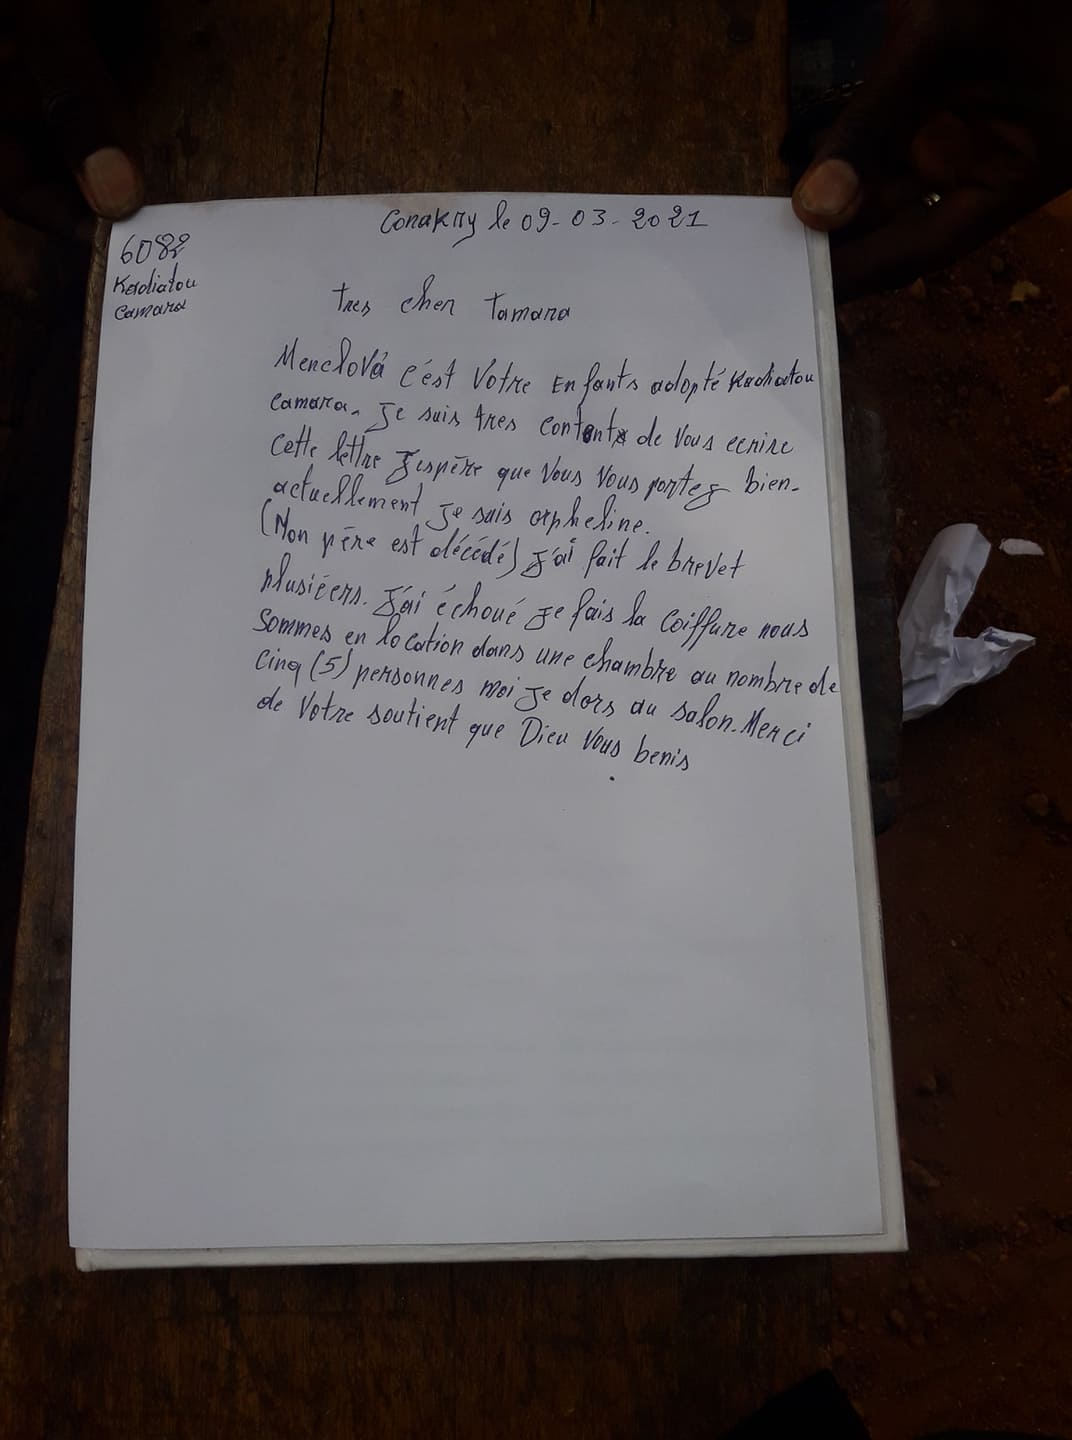 Conakry le 09-03-2021
6082
Kadiatou
Camara
tres cher Tamara
Menclová c'est Votre Enfants adopté Kadiatou
Camara. Je suis tres content de Vous ecrire
Cette lettre J'espère que Vous Vous portez bien.
actuellement Je suis orpheline.
(Mon père est décédé) J'ai fait le brevet
plusiéers. J'ai échoué Je fais la Coiffure nous
Sommes en location dans une chambre au nombre de
Cinq (5) personnes moi Je dors au salon. Merci
de Votre soutient que Dieu Vous benis
.